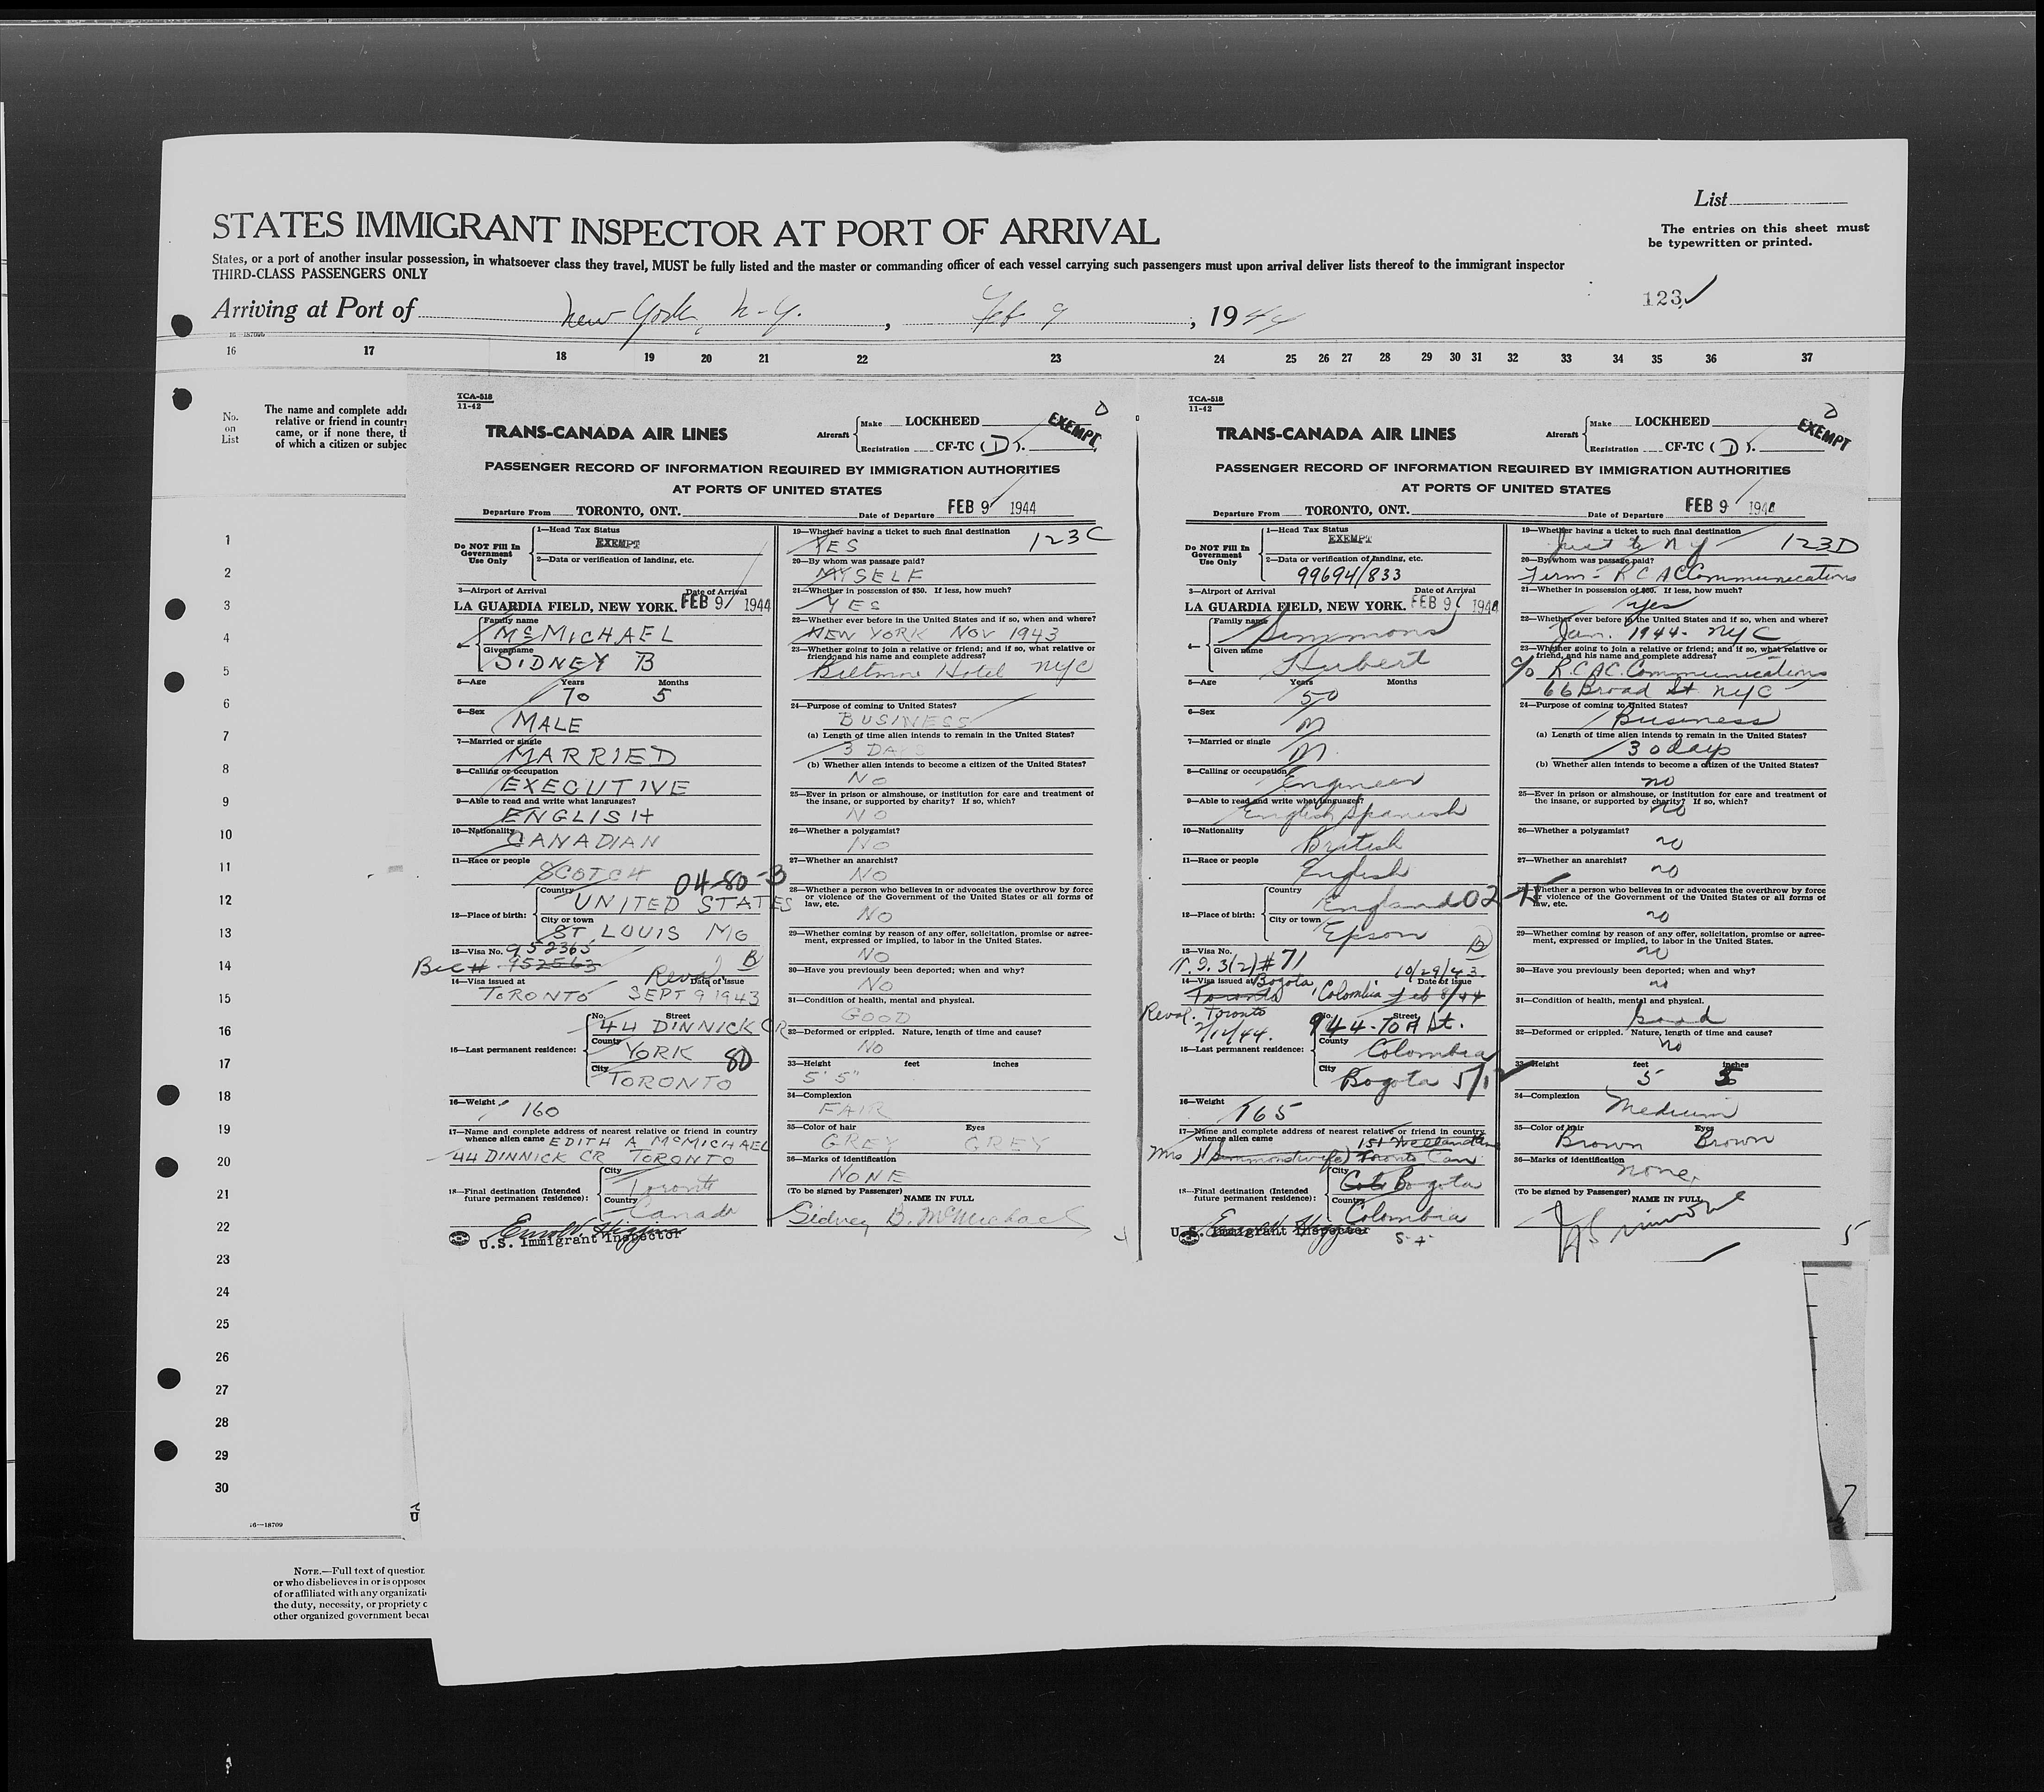 List
STATES IMMIGRANT INSPECTOR AT PORT OF ARRIVAL
The entries on this sheet must
be typewritten or printed.
States, or a port of another insular possession, in whatsoever class they travel, MUST be fully listed and the master or commanding officer of each vessel carrying such passengers must upon arrival deliver lists thereof to the immigrant inspector
THIRD-CLASS PASSENGERS ONLY
123
Arriving at Port of New York, N.Y. , Feb 9 , 1944
16 17 18 19 20 21 22 23 24 25 26 27 28 29 30 31 32 33 34 35 36 37
No.
on
List
The name and complete addr
relative or friend in country
came, or if none there, th
of which a citizen or subjec
1
2
3
4
5
6
7
8
9
10
11
12
13
14
15
16
17
18
19
20
21
22
23
24
25
26
27
28
29
30
16—18709
NOTE.—Full text of question
or who disbelieves in or is opposed
of or affiliated with any organizati
the duty, necessity, or propriety o
other organized government becau
TCA-518
11-42
TRANS-CANADA AIR LINES
Aircraft
Make LOCKHEED
Registration CF-TC (D).
EXEMPT
PASSENGER RECORD OF INFORMATION REQUIRED BY IMMIGRATION AUTHORITIES
AT PORTS OF UNITED STATES
Departure From TORONTO, ONT. Date of Departure FEB 9 1944
Do NOT Fill In
Government
Use Only
1—Head Tax Status
EXEMPT
2—Data or verification of landing, etc.
3—Airport of Arrival Date of Arrival
LA GUARDIA FIELD, NEW YORK. FEB 9 1944
4—
Family name
McMICHAEL
Given name
SIDNEY B
5—Age Years Months
70 5
6—Sex
MALE
7—Married or single
MARRIED
8—Calling or occupation
EXECUTIVE
9—Able to read and write what languages?
ENGLISH
10—Nationality
CANADIAN
11—Race or people
SCOTCH 04-80-3
12—Place of birth:
Country
UNITED STATES
City or town
ST LOUIS MO
13—Visa No. 952365
952563 B
Reval.
14—Visa issued at Date of issue
TORONTO SEPT 9 1943
15—Last permanent residence:
No. Street
44 DINNICK CR
County
YORK 80
City
TORONTO
16—Weight
160
17—Name and complete address of nearest relative or friend in country
whence alien came EDITH A McMICHAEL
44 DINNICK CR TORONTO
18—Final destination (Intended
future permanent residence):
City
Toronto
Country
Canada
U.S. Immigrant Inspector
19—Whether having a ticket to such final destination
YES 123C
20—By whom was passage paid?
MYSELF
21—Whether in possession of $50. If less, how much?
YES
22—Whether ever before in the United States and if so, when and where?
NEW YORK NOV 1943
23—Whether going to join a relative or friend; and if so, what relative or
friend, and his name and complete address?
Biltmore Hotel NYC
24—Purpose of coming to United States?
BUSINESS
(a) Length of time alien intends to remain in the United States?
3 DAYS
(b) Whether alien intends to become a citizen of the United States?
NO
25—Ever in prison or almshouse, or institution for care and treatment of
the insane, or supported by charity? If so, which?
NO
26—Whether a polygamist?
NO
27—Whether an anarchist?
NO
28—Whether a person who believes in or advocates the overthrow by force
or violence of the Government of the United States or all forms of
law, etc.
NO
29—Whether coming by reason of any offer, solicitation, promise or agree-
ment, expressed or implied, to labor in the United States.
NO
30—Have you previously been deported; when and why?
NO
31—Condition of health, mental and physical.
GOOD
32—Deformed or crippled. Nature, length of time and cause?
NO
33—Height feet inches
5' 5"
34—Complexion
FAIR
35—Color of hair Eyes
GREY GREY
36—Marks of identification
NONE
(To be signed by Passenger) NAME IN FULL
Sidney B. McMichael
TCA-518
11-42
TRANS-CANADA AIR LINES
Aircraft
Make LOCKHEED
Registration CF-TC (D).
EXEMPT
PASSENGER RECORD OF INFORMATION REQUIRED BY IMMIGRATION AUTHORITIES
AT PORTS OF UNITED STATES
Departure From TORONTO, ONT. Date of Departure FEB 9 1944
Do NOT Fill In
Government
Use Only
1—Head Tax Status
EXEMPT
2—Data or verification of landing, etc.
99694/833
3—Airport of Arrival Date of Arrival
LA GUARDIA FIELD, NEW YORK. FEB 9 1944
4—
Family name
Simmons
Given name
Hubert
5—Age Years Months
50
6—Sex
M
7—Married or single
M
8—Calling or occupation
Engineer
9—Able to read and write what languages?
English Spanish
10—Nationality
British
11—Race or people
English
12—Place of birth:
Country
England 02-
City or town
Epsom
13—Visa No. B
3(2) #71 10/29/43
14—Visa issued at Bogota, Colombia Date of issue
Toronto Feb 8/44
Reval. Toronto
944-70A St.
15—Last permanent residence:
No. Street
County
Colombia
City
Bogota 5/12
16—Weight
165
17—Name and complete address of nearest relative or friend in country
whence alien came
Mrs H Simmons (wife) Toronto Can
18—Final destination (Intended
future permanent residence):
City
Bogota
Country
Colombia
U.S. Immigrant Inspector
19—Whether having a ticket to such final destination
Just to NY 123D
20—By whom was passage paid?
Firm - RCAC Communications
21—Whether in possession of $50. If less, how much?
yes
22—Whether ever before in the United States and if so, when and where?
Jan. 1944 - NYC
23—Whether going to join a relative or friend; and if so, what relative or
friend, and his name and complete address?
c/o R.C.A.C. Communications
66 Broad St NYC
24—Purpose of coming to United States?
Business
(a) Length of time alien intends to remain in the United States?
30 days
(b) Whether alien intends to become a citizen of the United States?
no
25—Ever in prison or almshouse, or institution for care and treatment of
the insane, or supported by charity? If so, which?
no
26—Whether a polygamist?
no
27—Whether an anarchist?
no
28—Whether a person who believes in or advocates the overthrow by force
or violence of the Government of the United States or all forms of
law, etc.
no
29—Whether coming by reason of any offer, solicitation, promise or agree-
ment, expressed or implied, to labor in the United States.
no
30—Have you previously been deported; when and why?
no
31—Condition of health, mental and physical.
Good
32—Deformed or crippled. Nature, length of time and cause?
no
33—Height feet inches
5 5
34—Complexion
Medium
35—Color of hair Eyes
Brown Brown
36—Marks of identification
none.
(To be signed by Passenger) NAME IN FULL